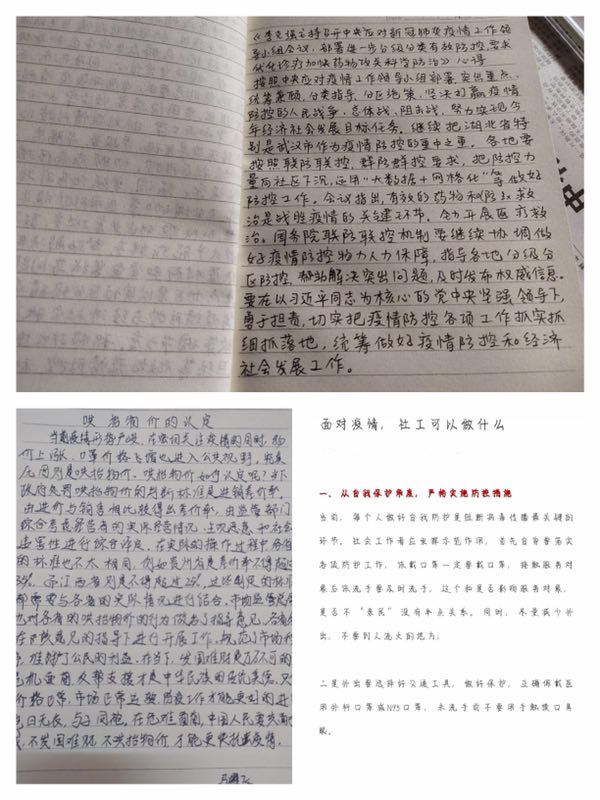 《李克强主持召开中央应对新冠肺炎疫情工作领
导小组会议,部署进一步分级分类有效防控,要求
优化诊疗加快药物攻关科学防治》心得
按照中央应对疫情工作领导小组部署,突出重点、
统筹兼顾,分类指导、分区施策,坚决打赢疫情
防控的人民战争、总体战、阻击战,努力实现今
年经济社会发展目标任务。继续把湖北省特
别是武汉市作为疫情防控的重中之重。各地要
按照联防联控、群防群控要求,把防控力
量向社区下沉,运用“大数据+网格化”等做好
防控工作。会议指出,有效的药物和防炎救
治是战胜疫情的关键环节。全力开展医疗救
治。国务院联防联控机制要继续协调做
好疫情防控物力人力保障,指导各地分级分
区防控,帮助解决突出问题,及时发布权威信息。
要在以习近平同志为核心的党中央坚强领导下,
勇于担责,切实把疫情防控各项工作抓实抓
细抓落地,统筹做好疫情防控和经济
社会发展工作。
哄抬物价的认定
当前疫情形势严峻,在密切关注疫情的同时,物
价上涨,口罩价格飞涨也进入公共视野,究其
原因则是哄抬物价。哄抬物价如何认定呢?
政府处罚哄抬物价的判断标准是进销差价率。
由进价与销售相比获得出差价率,由监管部门
综合考虑经营者的实际经营情况、主观恶意和社会
危害性进行综合评定。在实际的操作过程中各省
的标准也不太相同,例如贵州省是差价率不得超过
35%。而江西省则是不得超过
都需要与各省的实际情况进行结合。市场监管总局
也对各省的哄抬物价的行为做出了指导意见,各省
在
守,维护了公民的利益。在当下,发国难财是万不可的
危机面前,众帮支援才是中华民族的优优美德,
价格正常,市场正常运转,防疫工作才能更好的进
岂曰无衣,与子同袍,在危难面前,中国人民
不发国难财,不哄抬物价,才能更快战胜疫情。
面对疫情,社工可以做什么
一、从自我保护角度,严格实施防控措施
当前,每个人做好自我防护是阻断病毒传播最关键的
环节。社会工作者应发挥示范作用,首先自身要落实
各级防护工作,体戴口罩一定要戴口罩,接触服务对
象后依流于要及时洗手,这个和是否影响服务对象,
是否不“亲民”没有半点关系。同时,尽量减少外
出,不要到人流大的地方;
二是外出要选择好交通工具,做好保护,正确佩戴医
用外科口罩或N95口罩,未洗手前不要用手触摸口鼻
眼。